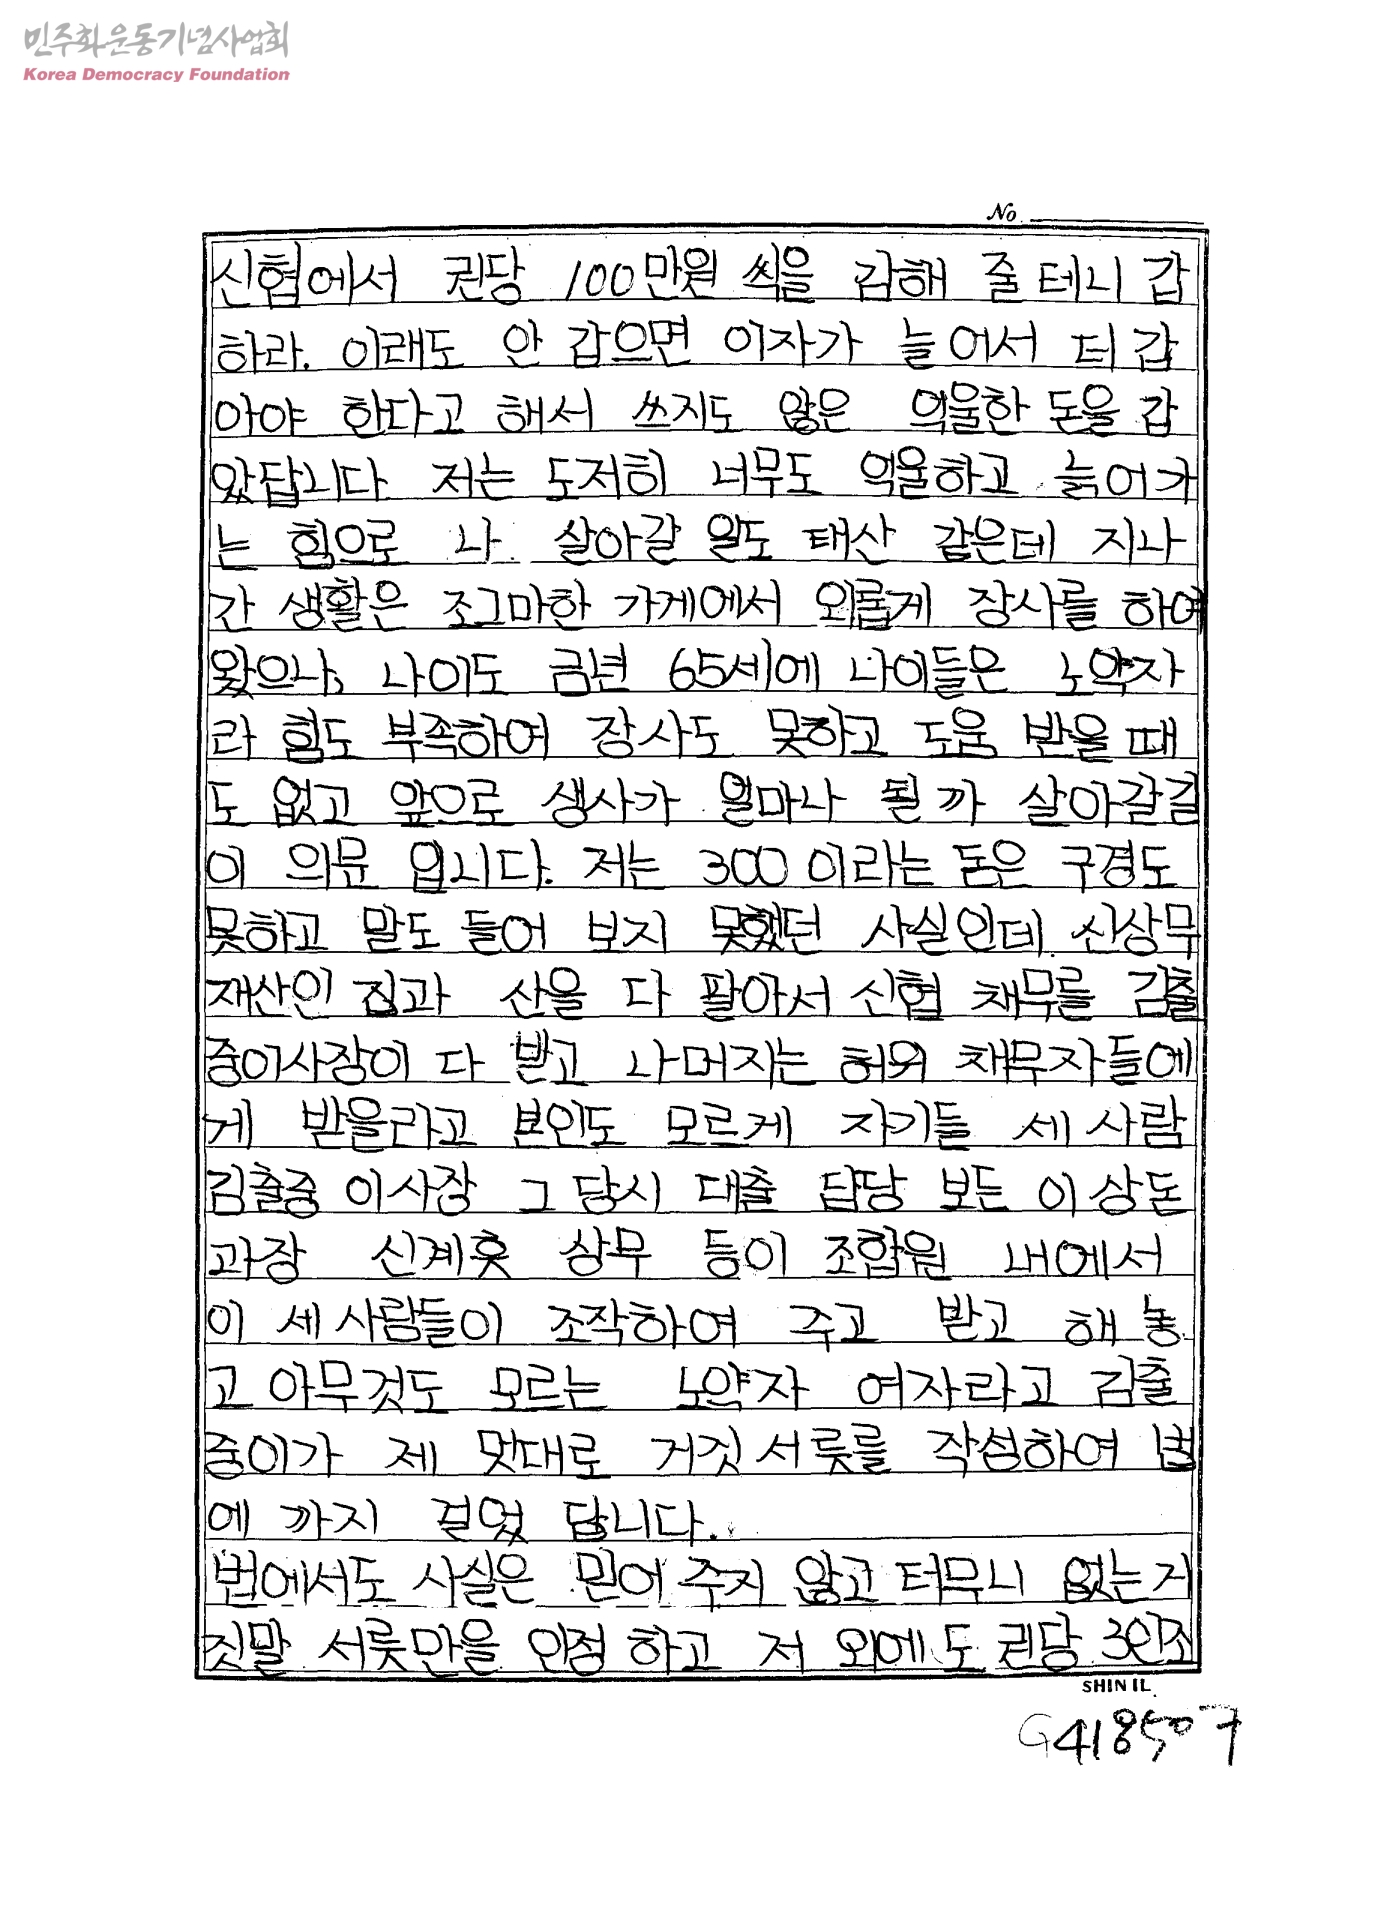 민주화운동기념사업회
Korea Democracy Foundation
No
신협에서 권당 100만원 씩을 감해 줄테니 갑
하라. 이래도 안 갑으면 이자가 늘어서 더 갑
아야 한다고 해서 쓰지도 않은 억울한 돈을 갑
았답니다 저는 도저히 너무도 억울하고 늙어가
는 힘으로 나 살아갈 일도 태산 같은데 지나
간 생활은 조그마한 가게에서 외롭게 장사를 하여
왔으나, 나이도 금년 65세에 나이들은 노약자
라 힘도 부족하여 장사도 못하고 도움 받을 때
도 없고 앞으로 생사가 얼마나 될까 살아갈길
이 의문 입니다. 저는 300이라는 돈은 구경도
못하고 말도 들어 보지 못했던 사실인데 신상무
재산인 집과 산을 다 팔아서 신협 채무를 김출
중이사장이 다 받고 나머지는 허위 채무자들에
게 받을라고 본인도 모르게 자기들 세사람
김출중 이사장 그 당시 대출 담당 보든 이상돈
과장 신계홋 상무 등이 조합원 내에서
이 세사람들이 조작하여 주고 받고 해 놓
고 아무것도 모르는 노약자 여자라고 김출
중이가 제 멋대로 거짓 서륫를 작성하여 법
에 까지 걸었 답니다.
법에서도 사실은 믿어 주지 않고 터무니 없는거
짓말 서륫만을 인정 하고 저 외에도 권당 3인조
SHIN IL.
G418507